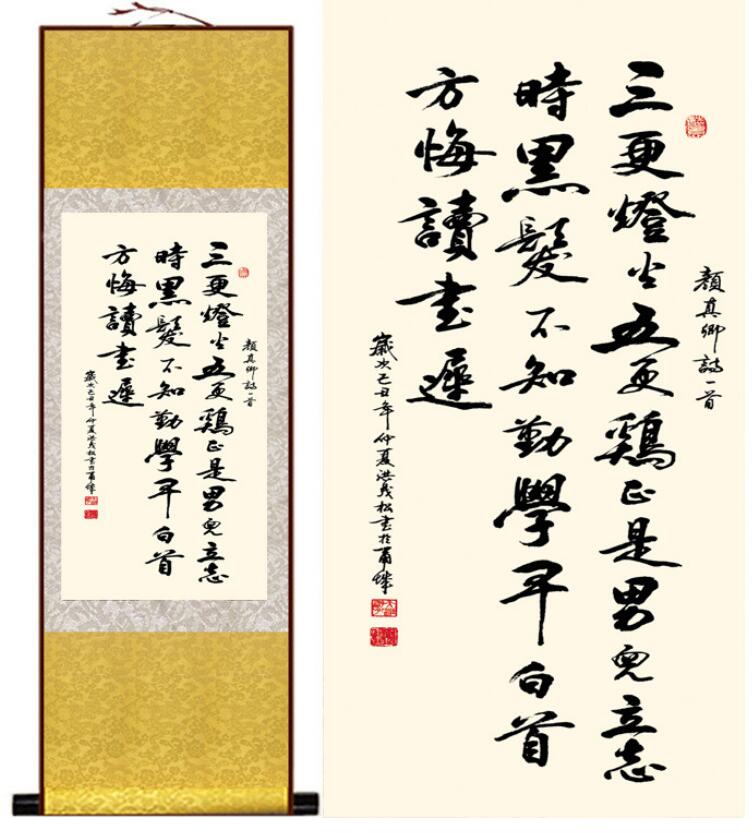 顔真卿詩一首
三更燈火五更鶏正是男兒立志
時黑髮不知勤學早白首
方悔讀書遲
歲次己丑年仲夏洪義松書於
顔真卿詩一首
三更燈火五更鶏正是男兒立志
時黑髮不知勤學早白首
方悔讀書遲
歲次己丑年仲夏洪義松書於